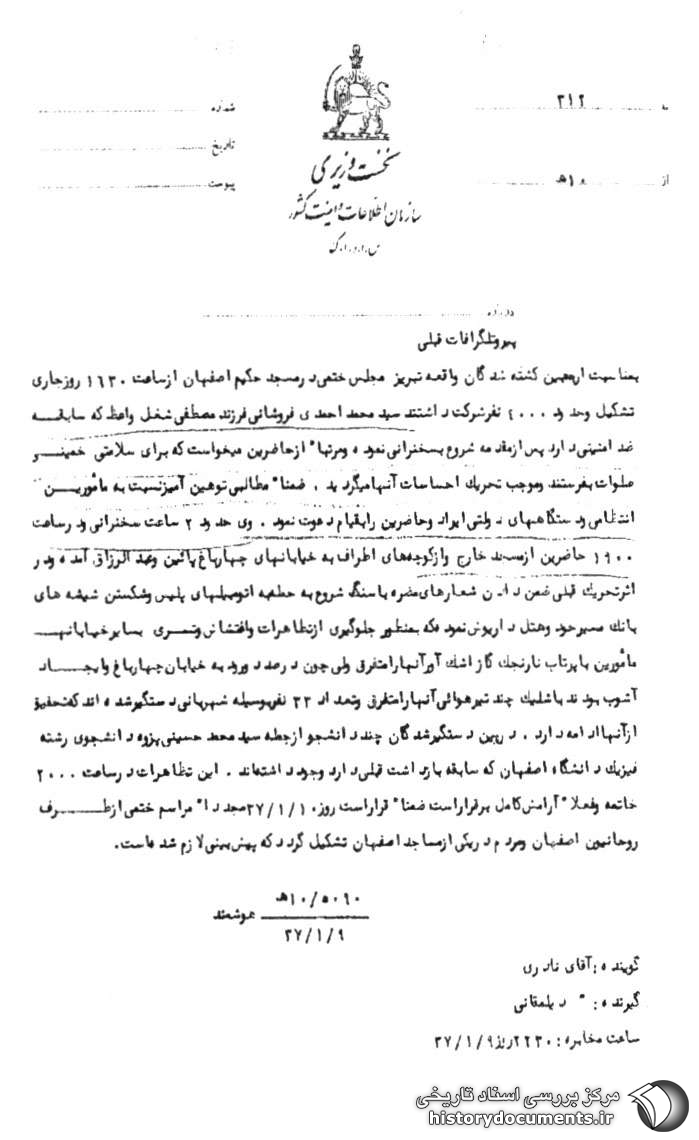 به ۳۱۲
شماره
تاریخ
از ۱۰هـ
پیوست
نخست وزیری
سازمان اطلاعات و امنیت کشور
س.ا.و.ا.ک
درباره
پیروتلگرافات قبلی
بمناسبت اربعین کشته شدگان واقعه تبریز مجلس ختمی در مسجد حکیم اصفهان از ساعت ۱٦۳۰ روز جاری
تشکیل و حدود ٤۰۰۰ نفر شرکت داشتند سید محمد احمدی فروشانی فرزند مصطفی شغل واعظ که سابقه
ضد امنیتی دارد پس از مقدمه شروع بسخنرانی نموده و مرتباً از حاضرین میخواست که برای سلامتی خمینی
صلوات بفرستند و موجب تحریک احساسات آنها میگردید . ضمناً مطالبی توهین آمیز نسبت به مأمورین
انتظامی و دستگاههای دولتی ایراد و حاضرین را بقیام دعوت نمود . وی حدود ۲ ساعت سخنرانی و در ساعت
۱۹۰۰ حاضرین از مسجد خارج و از کوچه‌های اطراف به خیابانهای چهارباغ پائین و عبد الرزاق آمده و در
اثر تحریک قبلی ضمن دادن شعارهای مضره با سنگ شروع به حمله به اتومبیلهای پلیس و شکستن شیشه های
بانک مسیر خود و هتل داریوش نموده که بمنظور جلوگیری از تظاهرات و اغتشاش و تسری بسایر خیابانها
مأمورین با پرتاب نارنجک گاز اشک آور آنها را متفرق ولی چون در صدد ورود به خیابان چهارباغ و ایجاد
آشوب بودند با شلیک چند تیر هوائی آنها را متفرق و تعداد ۳۳ نفر بوسیله شهربانی دستگیر شده اند که تحقیق
از آنها ادامه دارد . در بین دستگیرشدگان چند دانشجو از جمله سید محمد حسینی پزوه دانشجوی رشته
فیزیک دانشگاه اصفهان که سابقه بازداشت قبلی دارد وجود داشته‌اند . این تظاهرات در ساعت ۲۰۰۰
خاتمه و فعلاً آرامش کامل برقرار است ضمناً قرار است روز ۳۷/۱/۱۰ مجدداً مراسم ختمی از طرف
روحانیون اصفهان و مردم در یکی از مساجد اصفهان تشکیل گردد که پیش بینی لازم شده است.
۱۰/۵۰۹۰هـ
هوشمند
۳۷/۱/۹
گوینده : آقای نادری
گیرنده : " دیلمقانی
ساعت مخابره : ۲۲۳۰ روز ۳۷/۱/۹
مرکز بررسی اسناد تاریخی
historydocuments.ir